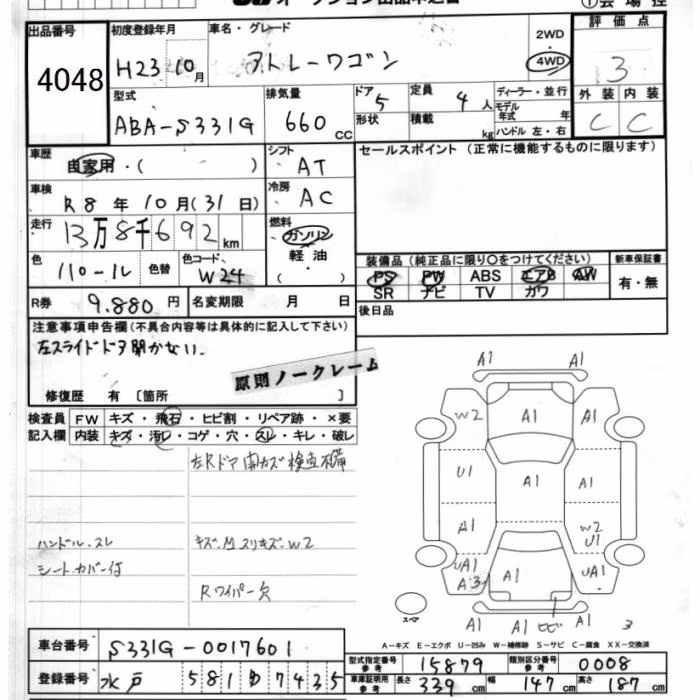 オークション出品申込書
出品番号 4048
初度登録年月 H23 10月
車名・グレード アトレーワゴン
2WD
4WD
評価点 3
外装 C 内装 C
型式 ABA-S331G
排気量 660 CC
ドア 5
形状
定員 4 人
積載 kg
ディーラー・並行
モデル年式 年
ハンドル 左・右
車歴 自家用・( )
シフト AT
セールスポイント(正常に機能するものに限ります)
車検 R8年10月(31日)
冷房 AC
走行 13万8千692km
燃料 ガソリン
軽油
・
( )
色 パール 色替
色コード W24
装備品(純正品に限り○をつけてください)
新車保証書
PS PW ABS エアB AW
SR ナビ TV カワ
有・無
R券 9.880円
名変期限 月 日
後日品
注意事項申告欄(不具合内容等は具体的に記入して下さい)
左スライドドア開かない.
原則ノークレーム
修復歴 有 [箇所 ]
検査員 FW キズ・飛石・ヒビ割・リペア跡・×要
記入欄 内装 キズ・汚レ・コゲ・穴・スレ・キレ・破レ
左Rドア開カズ 検査不備
ハンドル.スレ
キズ.M スリキズ.W2
シートカバー付
Rワイパー欠
A1 A1
W2 A1 A1
U1 A1 A1
A1 W2
U1
UA1 UA1
A3 A1
スペア A1 ヒビ A1 3
A-キズ E-エクボ U-凹み W-補修跡 S-サビ C-腐食 XX-交換済
車台番号 S331G-0017601
型式指定番号 参考 15879
類別区分番号 参考 0008
登録番号 水戸 581 7435
車庫証明用 参考 長さ 339cm 幅 147cm 高さ 187cm